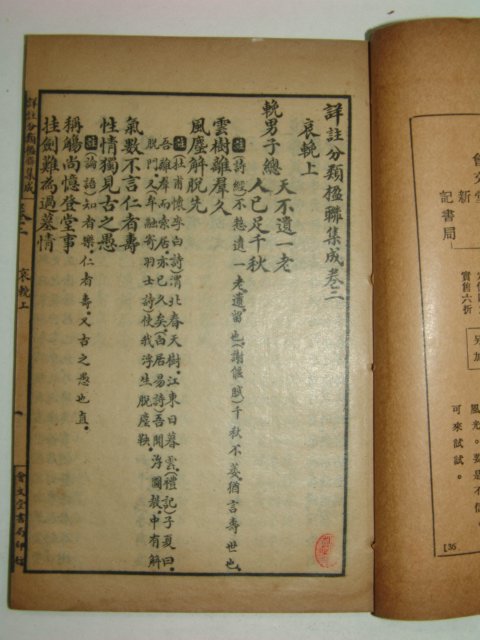 詳註分類楹聯集成卷三
哀輓上
輓男子總
天不遺一老
人已足千秋
【註】(詩經)不憖遺一老。遺。留也。(謝偃賦)千秋不萎。猶言壽世也。
雲樹離羣久
風塵解脫先
【註】(杜甫懷李白詩)渭北春天樹。江東日暮雲。(禮記)子夏曰。
吾離羣而索居亦已久矣。(白居易詩)吾聞浮圖教。中有解
脫門。又牟融寄羽士詩)使我浮生脫塵鞅。
氣數不言仁者壽
性情獨見古之愚
【註】(論語)知者樂。仁者壽。又古之愚也直。
稱觴尚憶登堂事
挂劍難為過墓情
詳註分類楹聯集成
卷三
哀輓上
一
會文堂書局印行
會文堂
新
記書局
實售六折
另加
可來試試。
【36